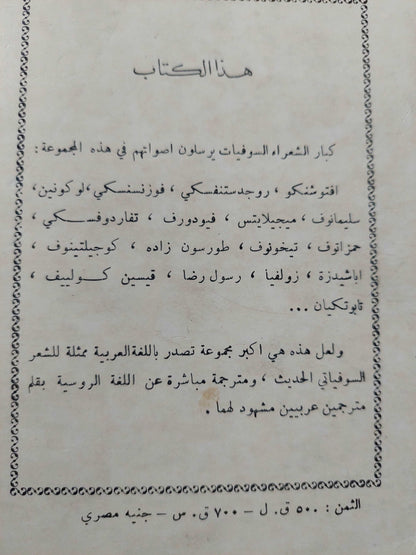 هذا الكتاب
كبار الشعراء السوفيات يرسلون اصواتهم في هذه المجموعة :
افتوشنكو ، روجدستنفسكي ، فوزنسنسكي ، لوكونين،
سليمانوف ، ميجيلايتس ، فيودورف ، تفاردوفسكي ،
حمزاتوف ، تيخونوف ، طورسون زاده ، كوجيلتينوف ،
اباشيدزة ، زولفيا ، رسول رضا ، قيسين كولييف ،
قابوتكيان ...
ولعل هذه هي اكبر مجموعة تصدر باللغة العربية ممثلة للشعر
السوفياتي الحديث ، ومترجمة مباشرة عن اللغة الروسية بقلم
مترجمين عربيين مشهود لهما .
الثمن : ٥٠٠ ق. ل - ٧٠٠ ق. س - جنيه مصري